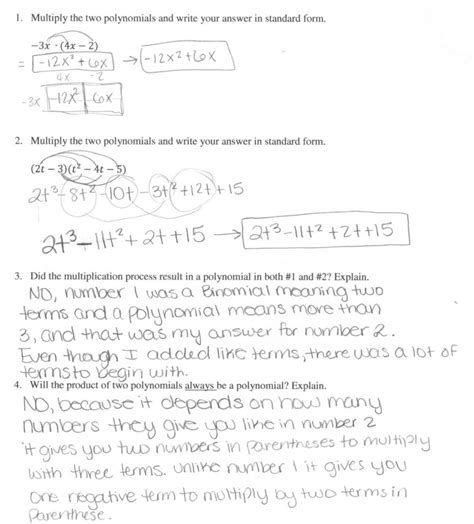 1. Multiply the two polynomials and write your answer in standard form.
-3x · (4x – 2)
= -12x² + 6x → -12x² + 6x
4x -2
-3x -12x² 6x
2. Multiply the two polynomials and write your answer in standard form.
(2t – 3)(t² – 4t – 5)
2t³ - 8t² - 10t - 3t² + 12t + 15
2t³ - 11t² + 2t + 15 → 2t³ - 11t² + 2t + 15
3. Did the multiplication process result in a polynomial in both #1 and #2? Explain.
NO, number 1 was a Binomial meaning two
terms and a polynomial means more than
3, and that was my answer for number 2.
Even though I added like terms, there was a lot of
terms to begin with.
4. Will the product of two polynomials always be a polynomial? Explain.
NO, because it depends on how many
numbers they give you like in number 2
it gives you two numbers in parentheses to multiply
with three terms. unlike number 1 it gives you
one negative term to multiply by two terms in
parenthese.